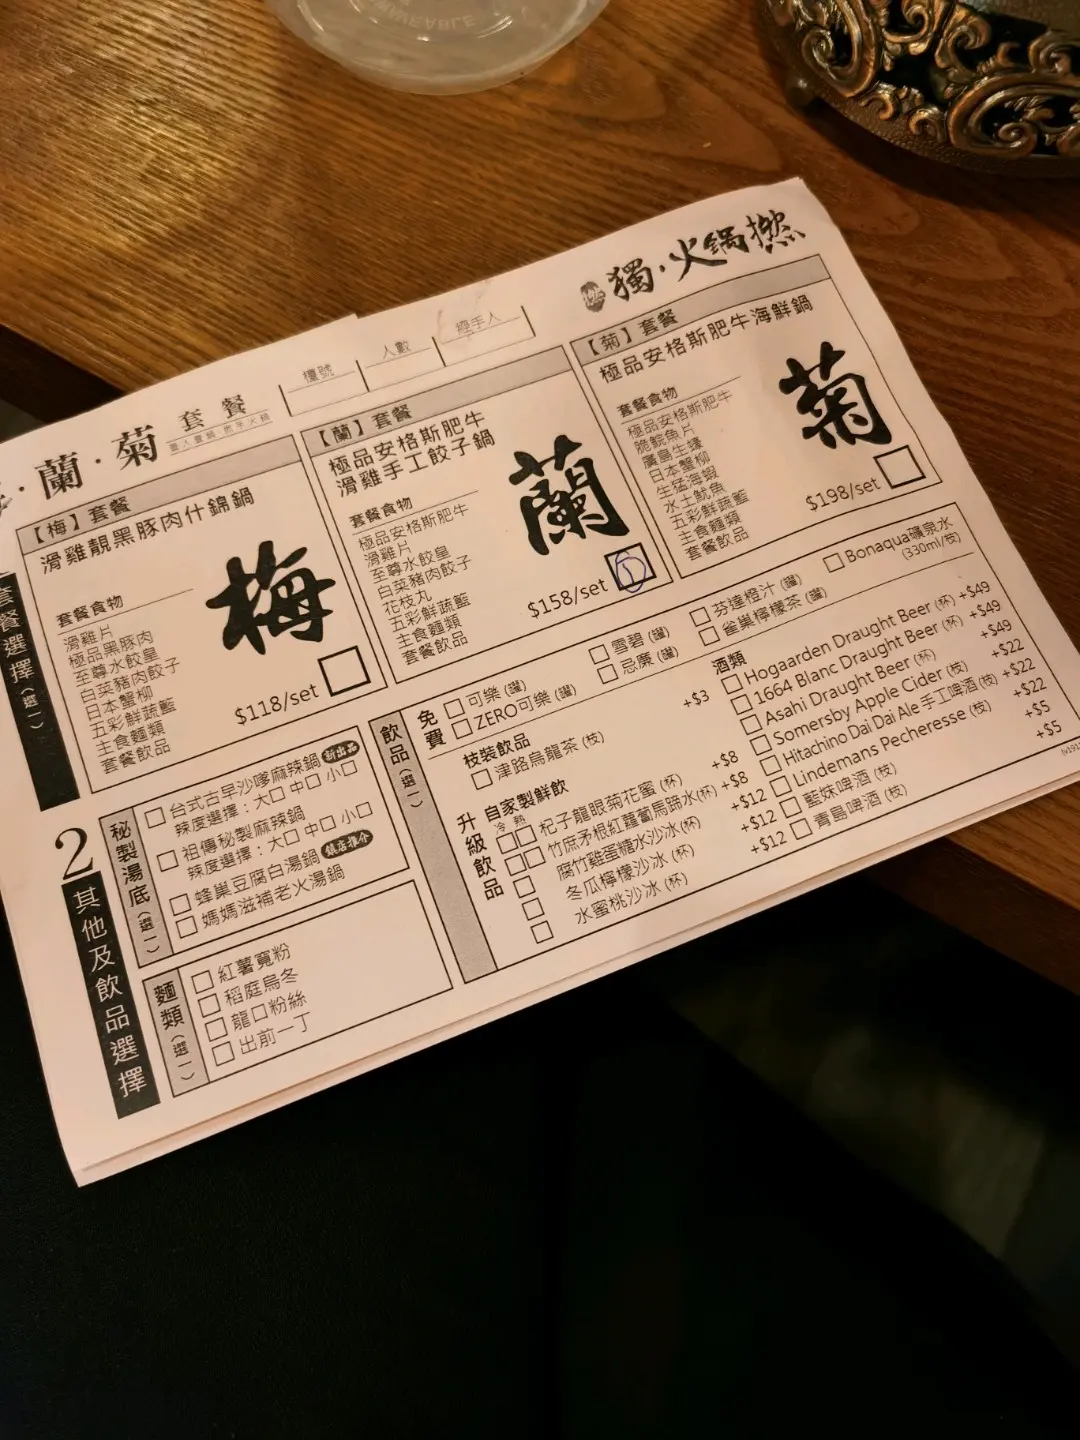 獨·火鍋撚
蘭·菊 套餐
單人靈鍋·煮字火鍋
檯號
人數
經手人
套餐選擇(選一)
【梅】套餐
滑雞靚黑豚肉什錦鍋
梅
套餐食物
滑雞片
極品黑豚肉
至尊水餃皇
白菜豬肉餃子
日本蟹柳
五彩鮮蔬籃
主食麵類
套餐飲品
$118/set
【蘭】套餐
極品安格斯肥牛
滑雞手工餃子鍋
蘭
套餐食物
極品安格斯肥牛
滑雞片
至尊水餃皇
白菜豬肉餃子
花枝丸
五彩鮮蔬籃
主食麵類
套餐飲品
$158/set
1
【菊】套餐
極品安格斯肥牛海鮮鍋
菊
套餐食物
極品安格斯肥牛
脆鯇魚片
廣島生蠔
日本蟹柳
生猛海蝦
水土魷魚
五彩鮮蔬籃
主食麵類
套餐飲品
$198/set
2 其他及飲品選擇
秘製湯底(選一)
台式古早沙嗲麻辣鍋 新出品
辣度選擇：大 中 小
祖傳秘製麻辣鍋
辣度選擇：大 中 小
蜂巢豆腐白湯鍋 鎮店推介
媽媽滋補老火湯鍋
麵類(選一)
紅薯寬粉
稻庭烏冬
龍口粉絲
出前一丁
飲品(選一)
免費
可樂(罐)
ZERO可樂(罐)
雪碧(罐)
忌廉(罐)
芬達橙汁(罐)
雀巢檸檬茶(罐)
Bonaqua礦泉水
(330ml/枝)
升級飲品
枝裝飲品
津路烏龍茶(枝) +$3
自家製鮮飲
冷 熱
杞子龍眼菊花蜜(杯) +$8
竹蔗矛根紅蘿蔔馬蹄水(杯) +$8
腐竹雞蛋糖水沙冰(杯) +$12
冬瓜檸檬沙冰(杯) +$12
水蜜桃沙冰(杯) +$12
酒類
Hogaarden Draught Beer(杯) +$49
1664 Blanc Draught Beer(杯) +$49
Asahi Draught Beer(杯) +$49
Somersby Apple Cider(枝) +$22
Hitachino Dai Dai Ale手工啤酒(枝) +$22
Lindemans Pecheresse(枝) +$22
藍妹啤酒(枝) +$5
青島啤酒(枝) +$5